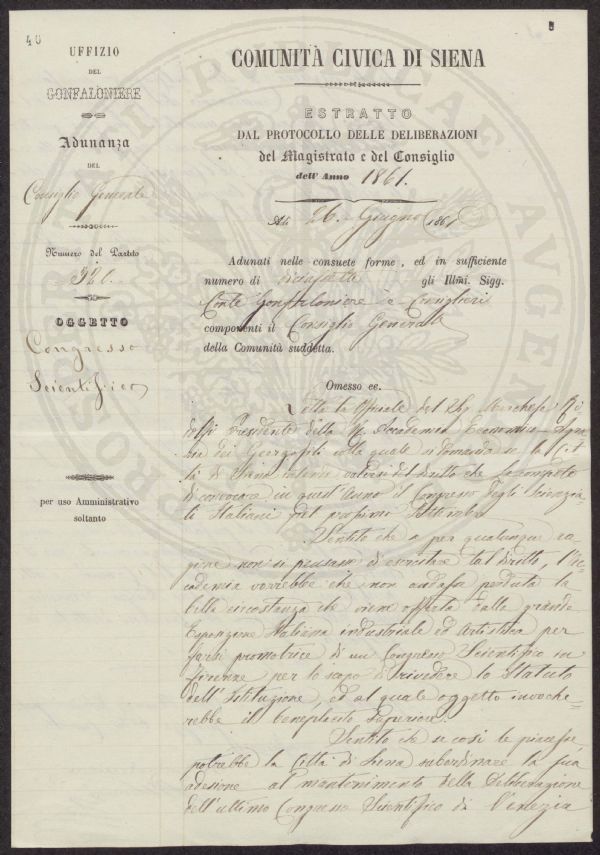 40
5
UFFIZIO
DEL
GONFALONIERE
Adunanza
DEL
Consiglio Generale
Numero del Partito
OGGETTO
Congresso
Scientifico
per uso Amministrativo
soltanto
COMUNITÀ CIVICA DI SIENA
ESTRATTO
DAL PROTOCOLLO DELLE DELIBERAZIONI
del Magistrato e del Consiglio
dell' Anno 1861.
Adì 26. Giugno 1861
Adunati nelle consuete forme, ed in sufficiente
numero di gli Illmi. Sigg.
Conte Gonfaloniere e Consiglieri
componenti il Consiglio Generale
della Comunità suddetta.
Omesso ec.
Letta la Officiale del Sig. Marchese Ri
dolfi Presidente della R. Accademia Economico Agra
ria dei Georgofili colla quale si domanda se la Cit
tà di Siena intende valersi del diritto che le compete
di convocare in quest'anno il Congresso degli Scienzia
ti Italiani nel prossimo Settembre
Sentito che se per qualunque ca
gione non si pensasse di esercitare tal diritto, l'Ac
cademia vorrebbe che non andasse perduta la
bella circostanza che viene offerta dalla grande
Esposizione Italiana industriale ed Artistica per
farsi promotrice di un Congresso Scientifico in
Firenze per lo scopo di rivedere lo Statuto
dell'Istituzione, ed al quale oggetto invoche
rebbe il beneplacito Superiore.
Sentito che se così le piacesse
potrebbe la Città di Siena subordinare la sua
adesione al mantenimento della Deliberazione
dell'ultimo Congresso Scientifico di Venezia